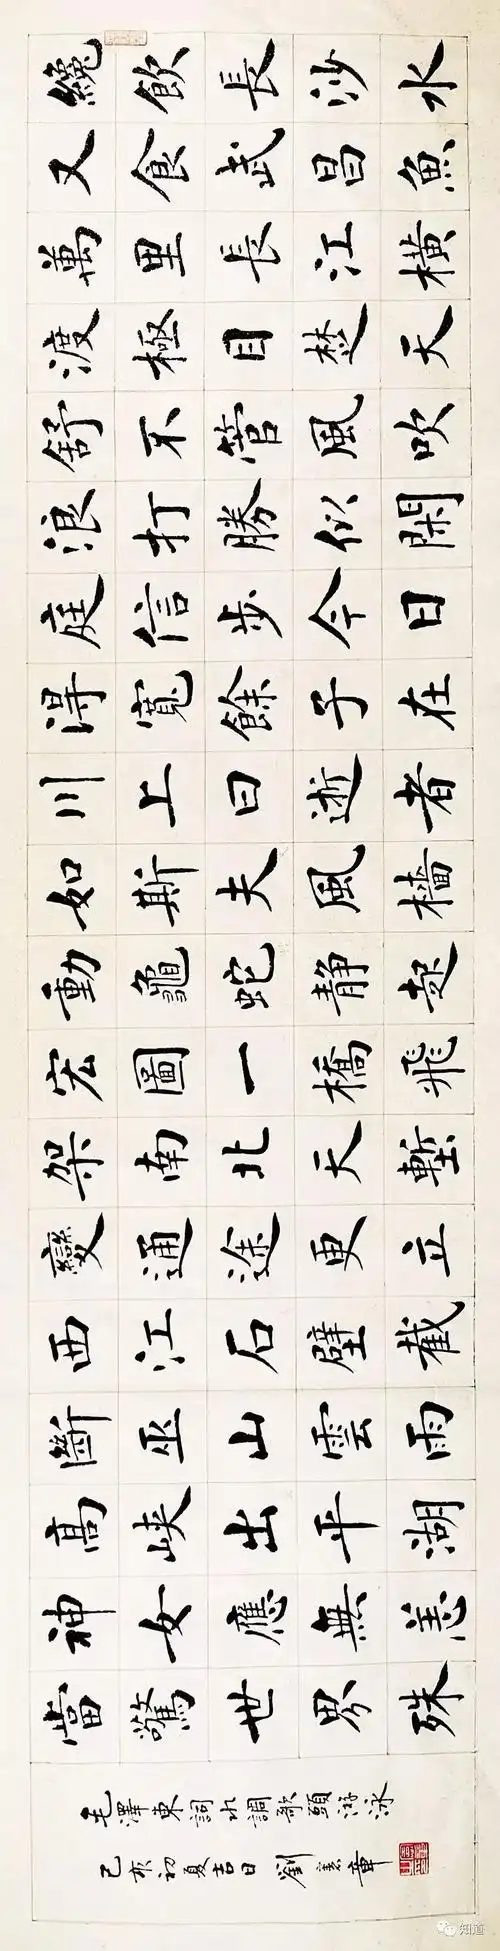 纔飲長沙水
又食武昌魚
萬里長江橫
渡極目楚天
舒不管風吹
浪打勝似閑
庭信步今日
得寬餘子在
川上曰逝者
如斯夫風檣
動龜蛇静起
宏圖一橋飛
架南北天塹
變通途更立
西江石壁截
斷巫山雲雨
高峽出平湖
神女應無恙
當驚世界殊
毛澤東詞水調歌頭游泳
己亥初夏吉日劉憲章
知道